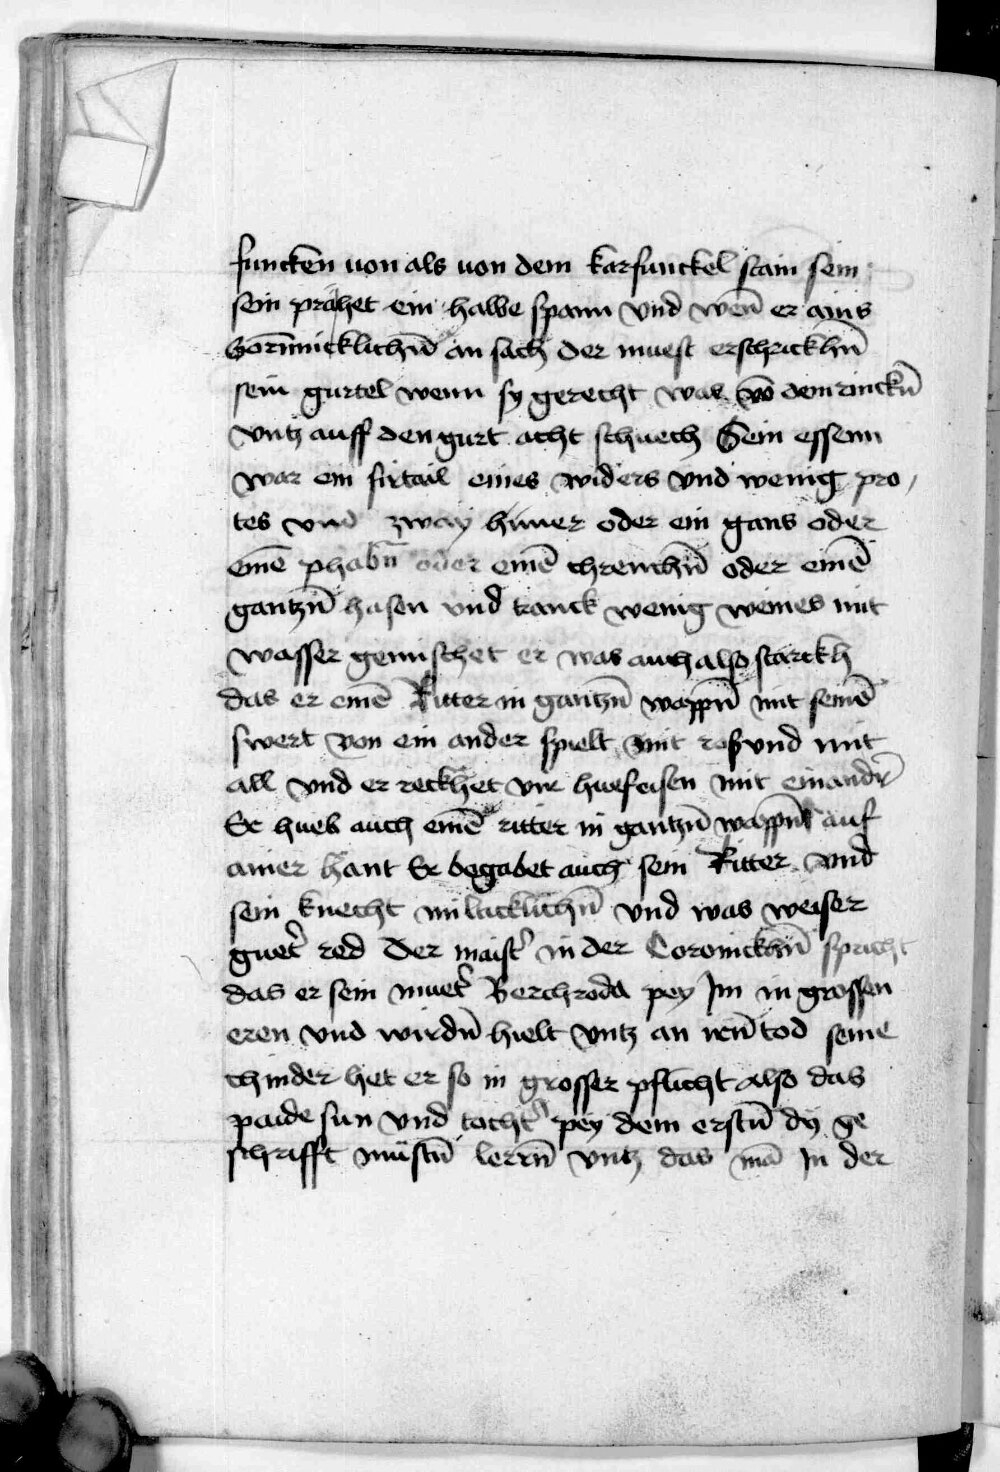 funcken uon als uon dem karfunckel stain sein
sein prahet ein halbe spann vnd wen̄ er ains
Zorūnicklichn̄ an sach der muest erschrickhn̄
sein gurtel wenn sy gerecht was vō dem rinckn̄
vntz auff den gurt acht schuech Sein essenn
war ein firtail eines widers vnd wenig pro,
tes vnd zway hüner oder ein gans oder
einē phabn̄ oder einē chrenchn̄ oder einē
gantzn̄ hasen vnd tranck wenig weines mit
wasser gemischet er was auch also starckh
das er einē Ritter in gantzn̄ wappn̄ mit seinē
swert von ein ander spielt mit ros vnd mit
all vnd er reckhet vir huefeisen mit einandr̄
Er hueb auch einē ritter in gantzn̄ wappn̄ auf
ainer hant Er begabet auch sein Ritter vnd
sein knecht milticklichn̄ vnd was weiser
guet̄ red Der maist̄ in der Coronickhn̄ spricht
das er sein muet̄ Berchroda pey Im in grossen
eren vnd wirdn̄ hielt vntz an irn̄ tod seine
chinder het er so in grosser pflicht also das
paide sun vnd tocht̄ pey dem erstn̄ dy ge
schrifft müstn̄ lernn̄ vntz das mā In der